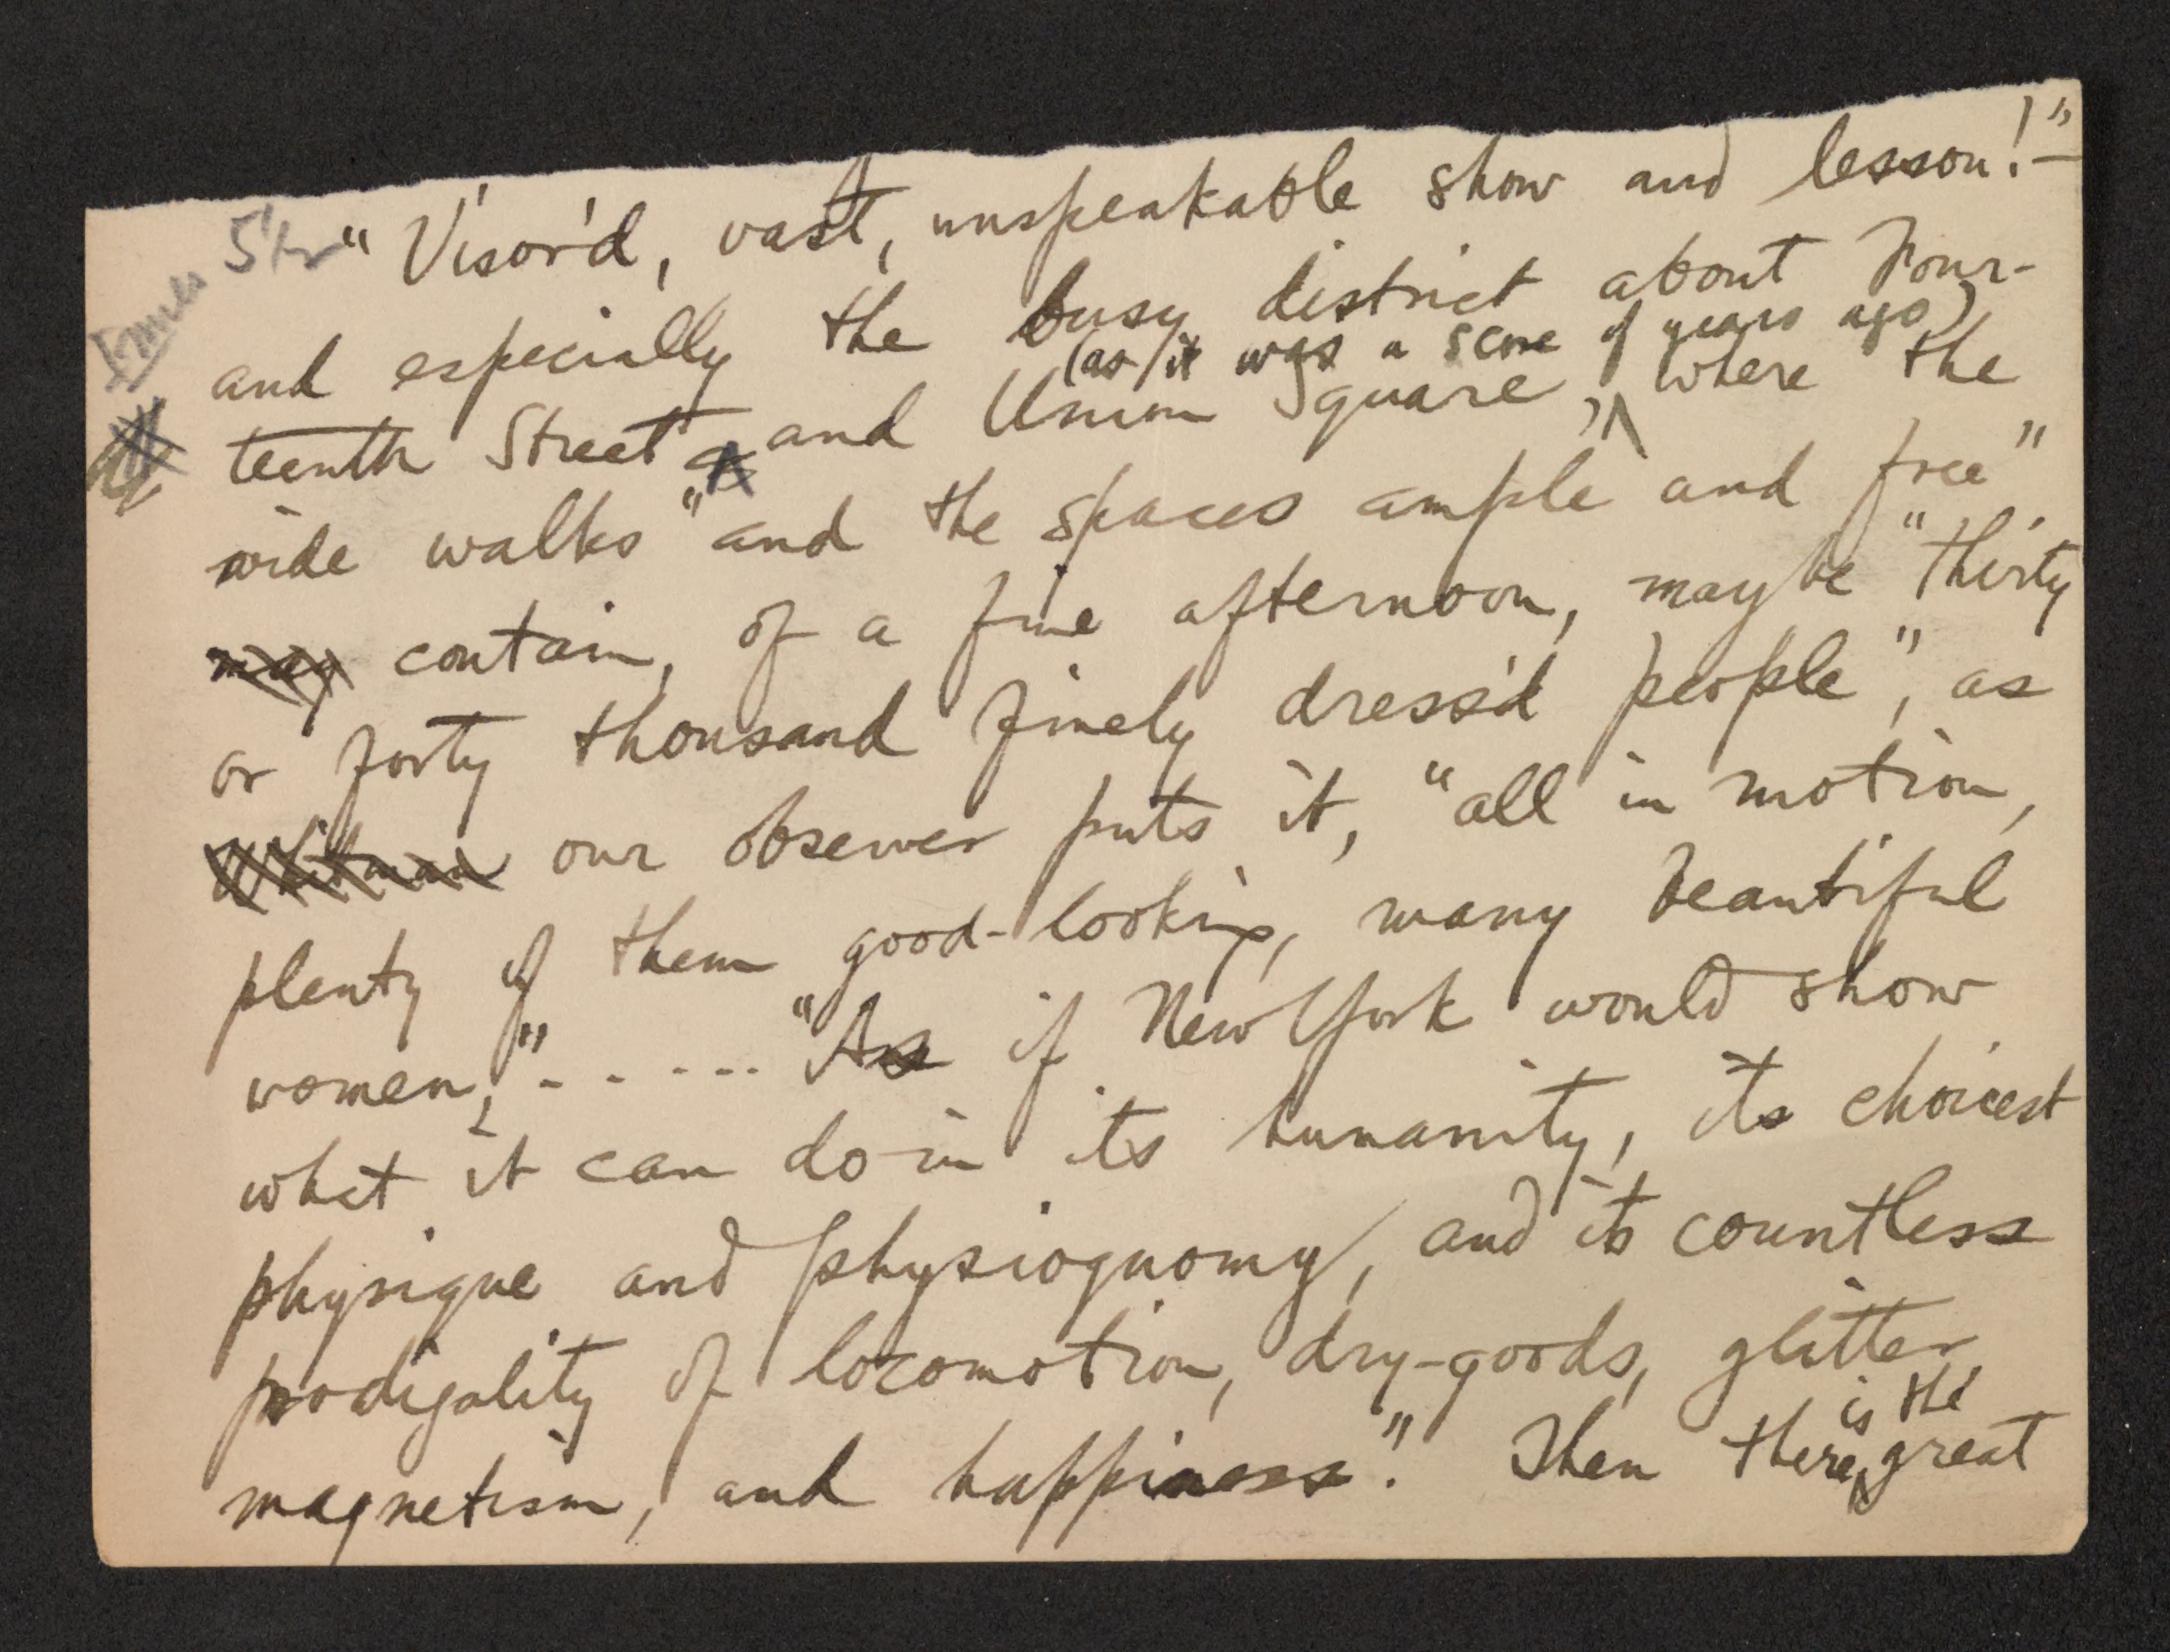 "Visor'd, vast, unspeakable show and lesson!"—
and especially the busy district about Four-
(as it was a score of years ago)
teenth Street and Union Square, where the
wide walks "and the spaces ample and free"
may contain, of a fine afternoon, maybe "thirty
or forty thousand finely dress'd people", as
Whitman our observer puts it, "all in motion,
plenty of them good-looking, many beautiful
women," - - - - - - "As if New York would show
what it can do in its humanity, its choicest
physique and physiognomy, and its countless
prodigality of locomotion, dry-goods, glitter
is the
magnetism, and happiness." Then there great